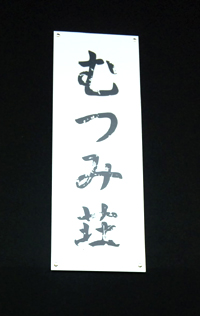 むつみ荘